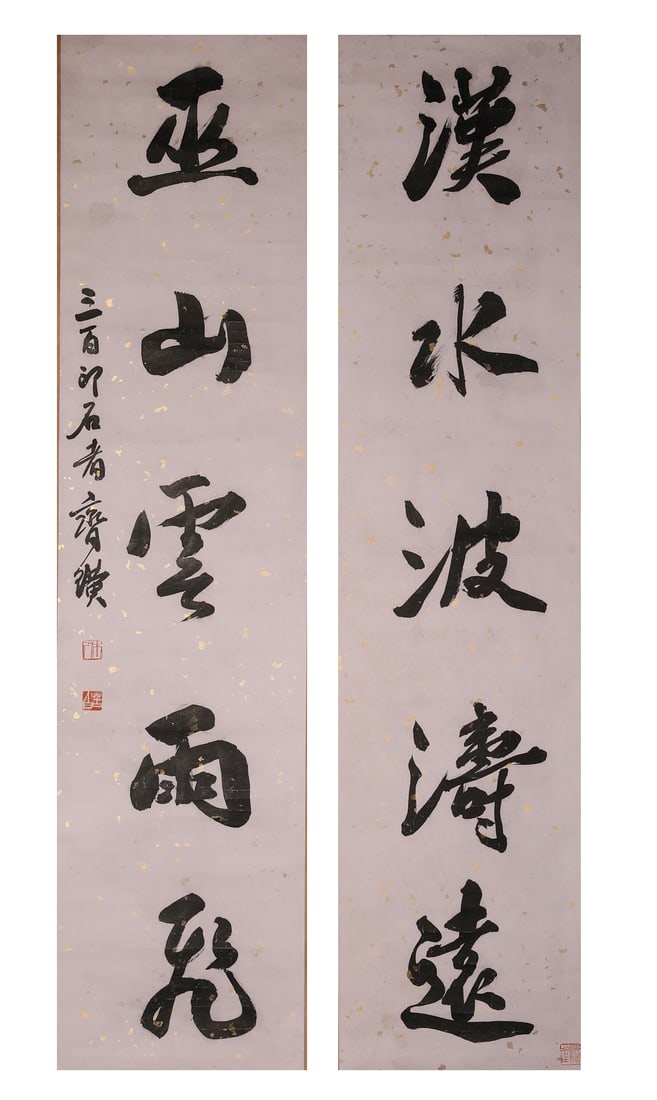 漢水波濤遠
巫山雲雨飛
三百印石者齊璜